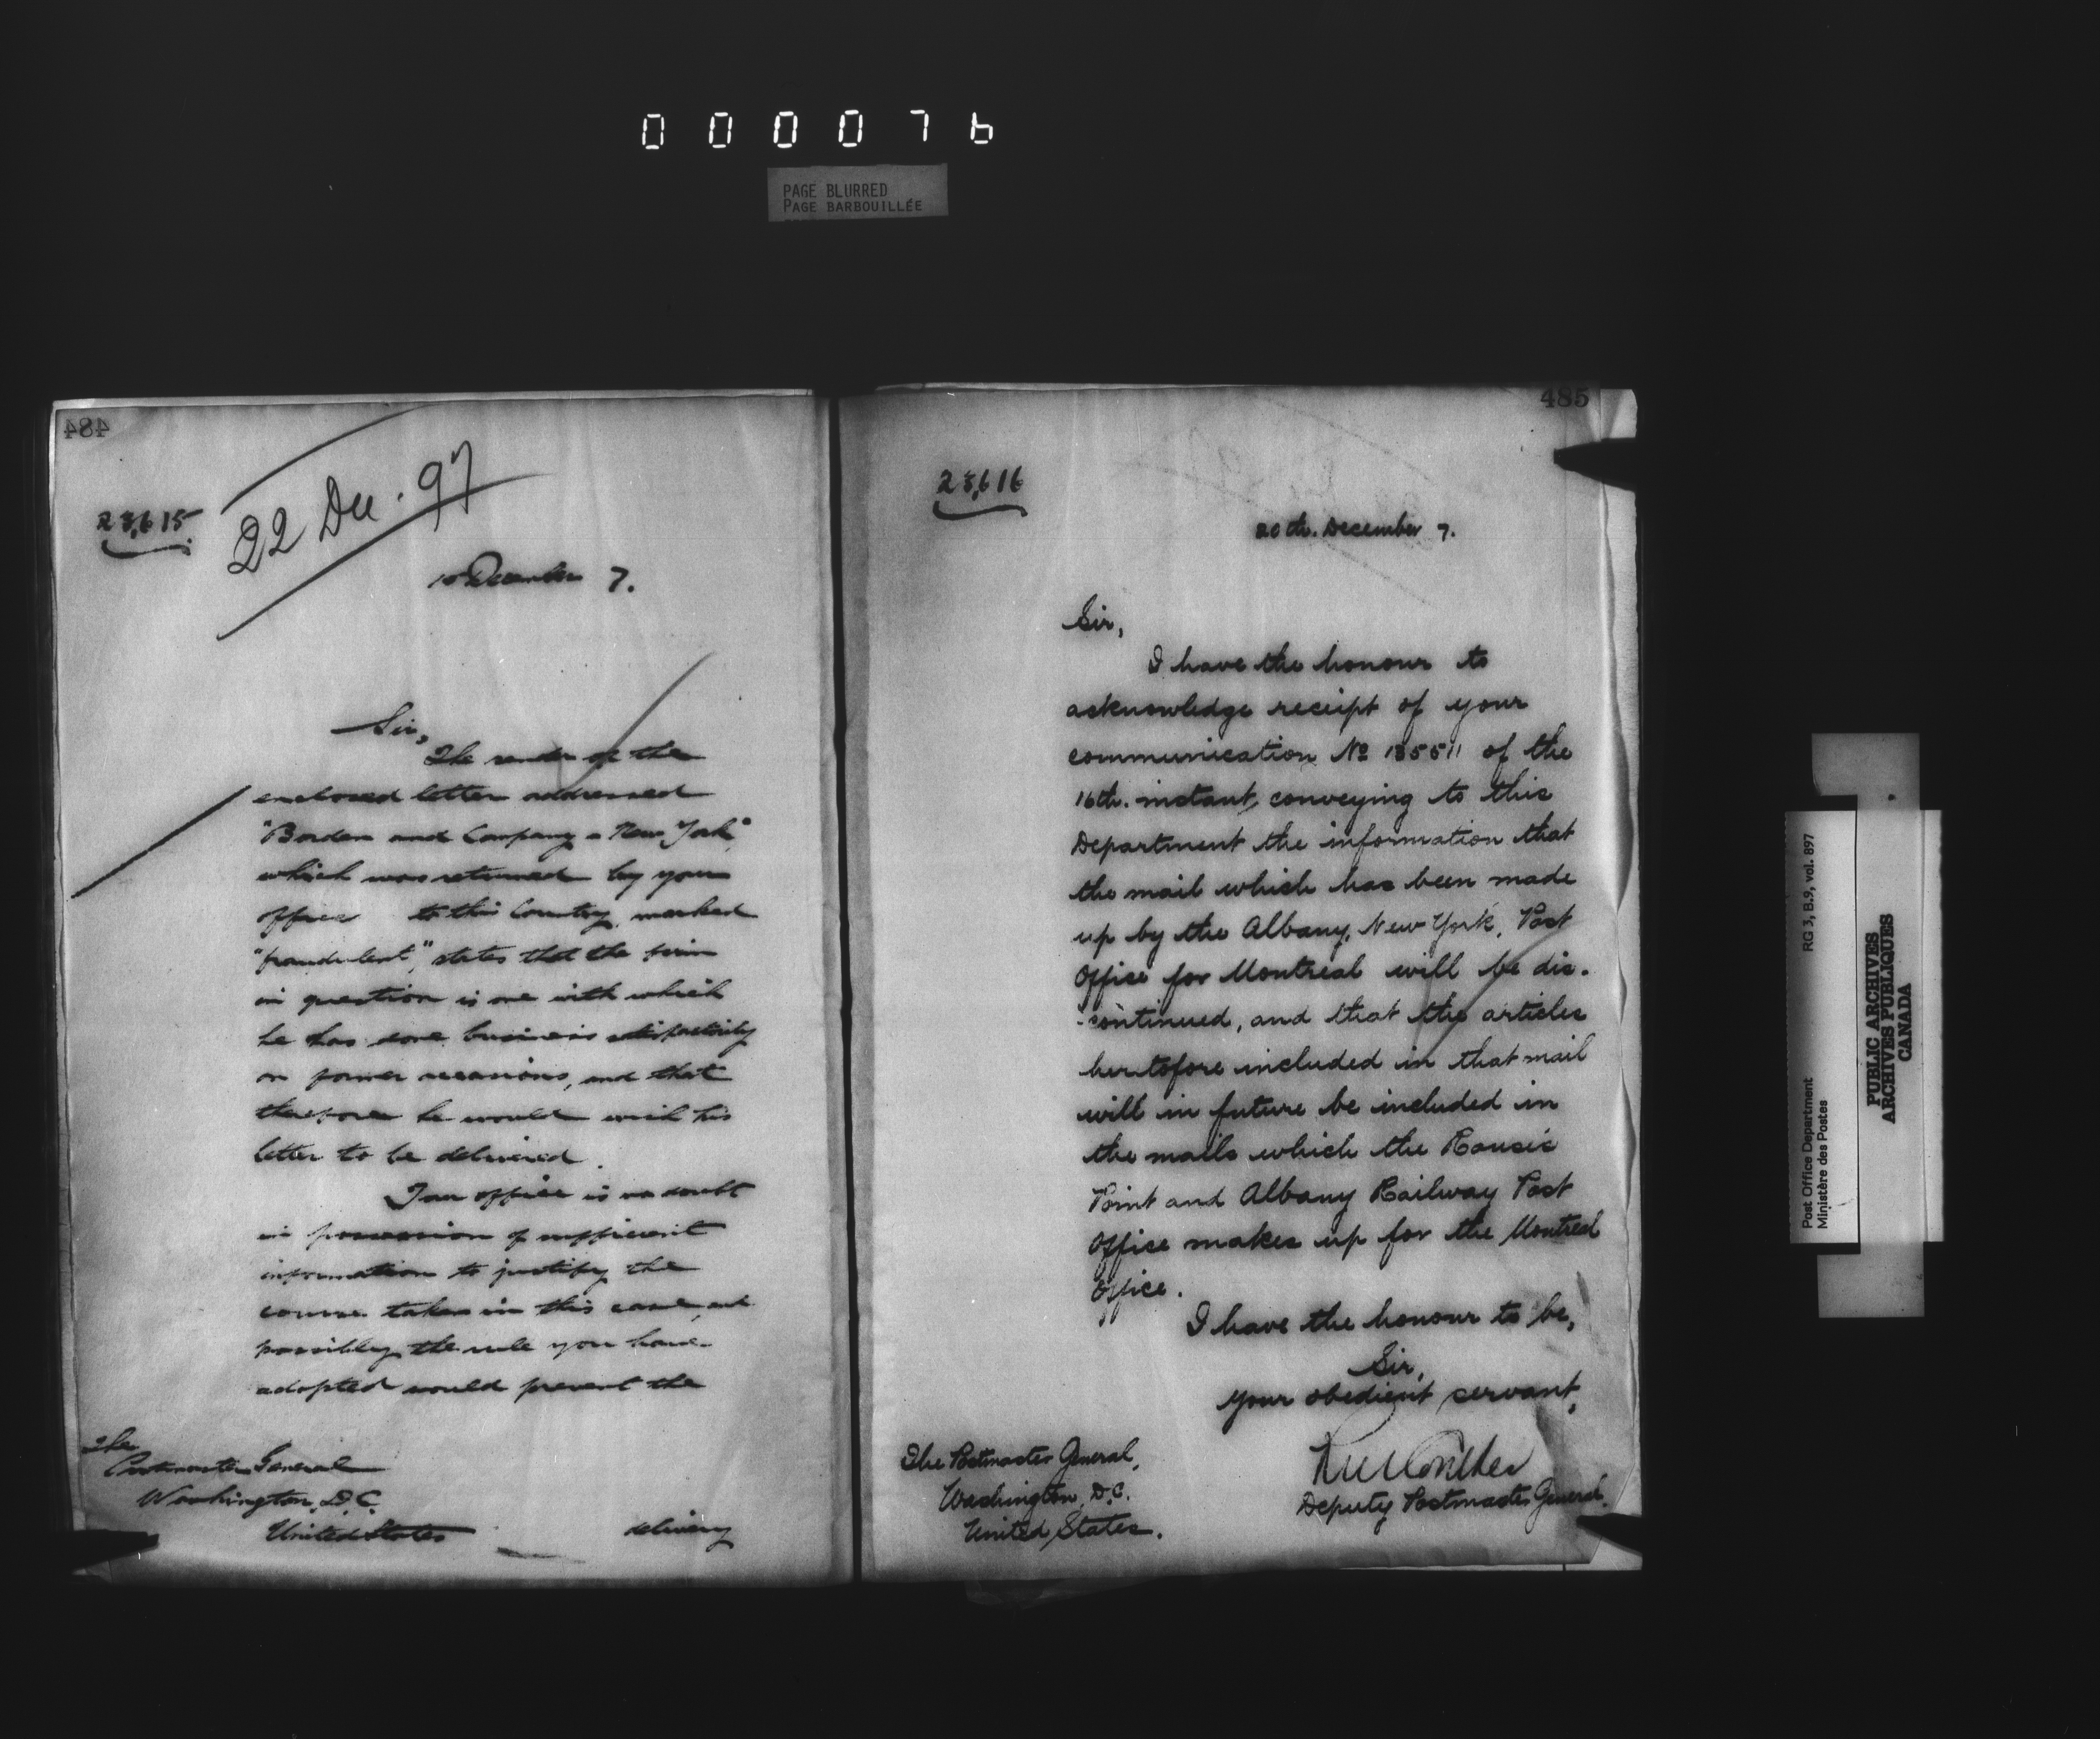 000076
PAGE BLURRED
PAGE BARBOUILLÉE
484
22 Dec. 97
23,615
December 7.
Sir,
The sender of the
enclosed letter addressed
"Borden and Company - New York",
which was returned by your
office to this Country, marked
"fraudulent", states that the firm
in question is one with which
he has done business satisfactorily
on former occasions, and that
therefore he would wish his
letter to be delivered.
Your office is no doubt
in possession of sufficient
information to justify the
course taken in this case, and
possibly the rule you have
adopted would prevent the
The
Postmaster General
Washington, D.C.
United States
delivery
485
23,616
20th. December 7.
Sir,
I have the honour to
acknowledge receipt of your
communication No 135511 of the
16th. instant, conveying to this
Department the information that
the mail which has been made
up by the Albany, New York, Post
Office for Montreal will be dis-
-continued, and that the articles
hertofore included in that mail
will in future be included in
the mails which the Rouses
Point and Albany Railway Post
Office makes up for the Montreal
Office.
I have the honour to be,
Sir,
Your obedient servant,
Deputy Postmaster General.
The Postmaster General,
Washington, D.C.
United States.
Post Office Department RG 3, B.9, vol. 897
Ministère des Postes
PUBLIC ARCHIVES
ARCHIVES PUBLIQUES
CANADA